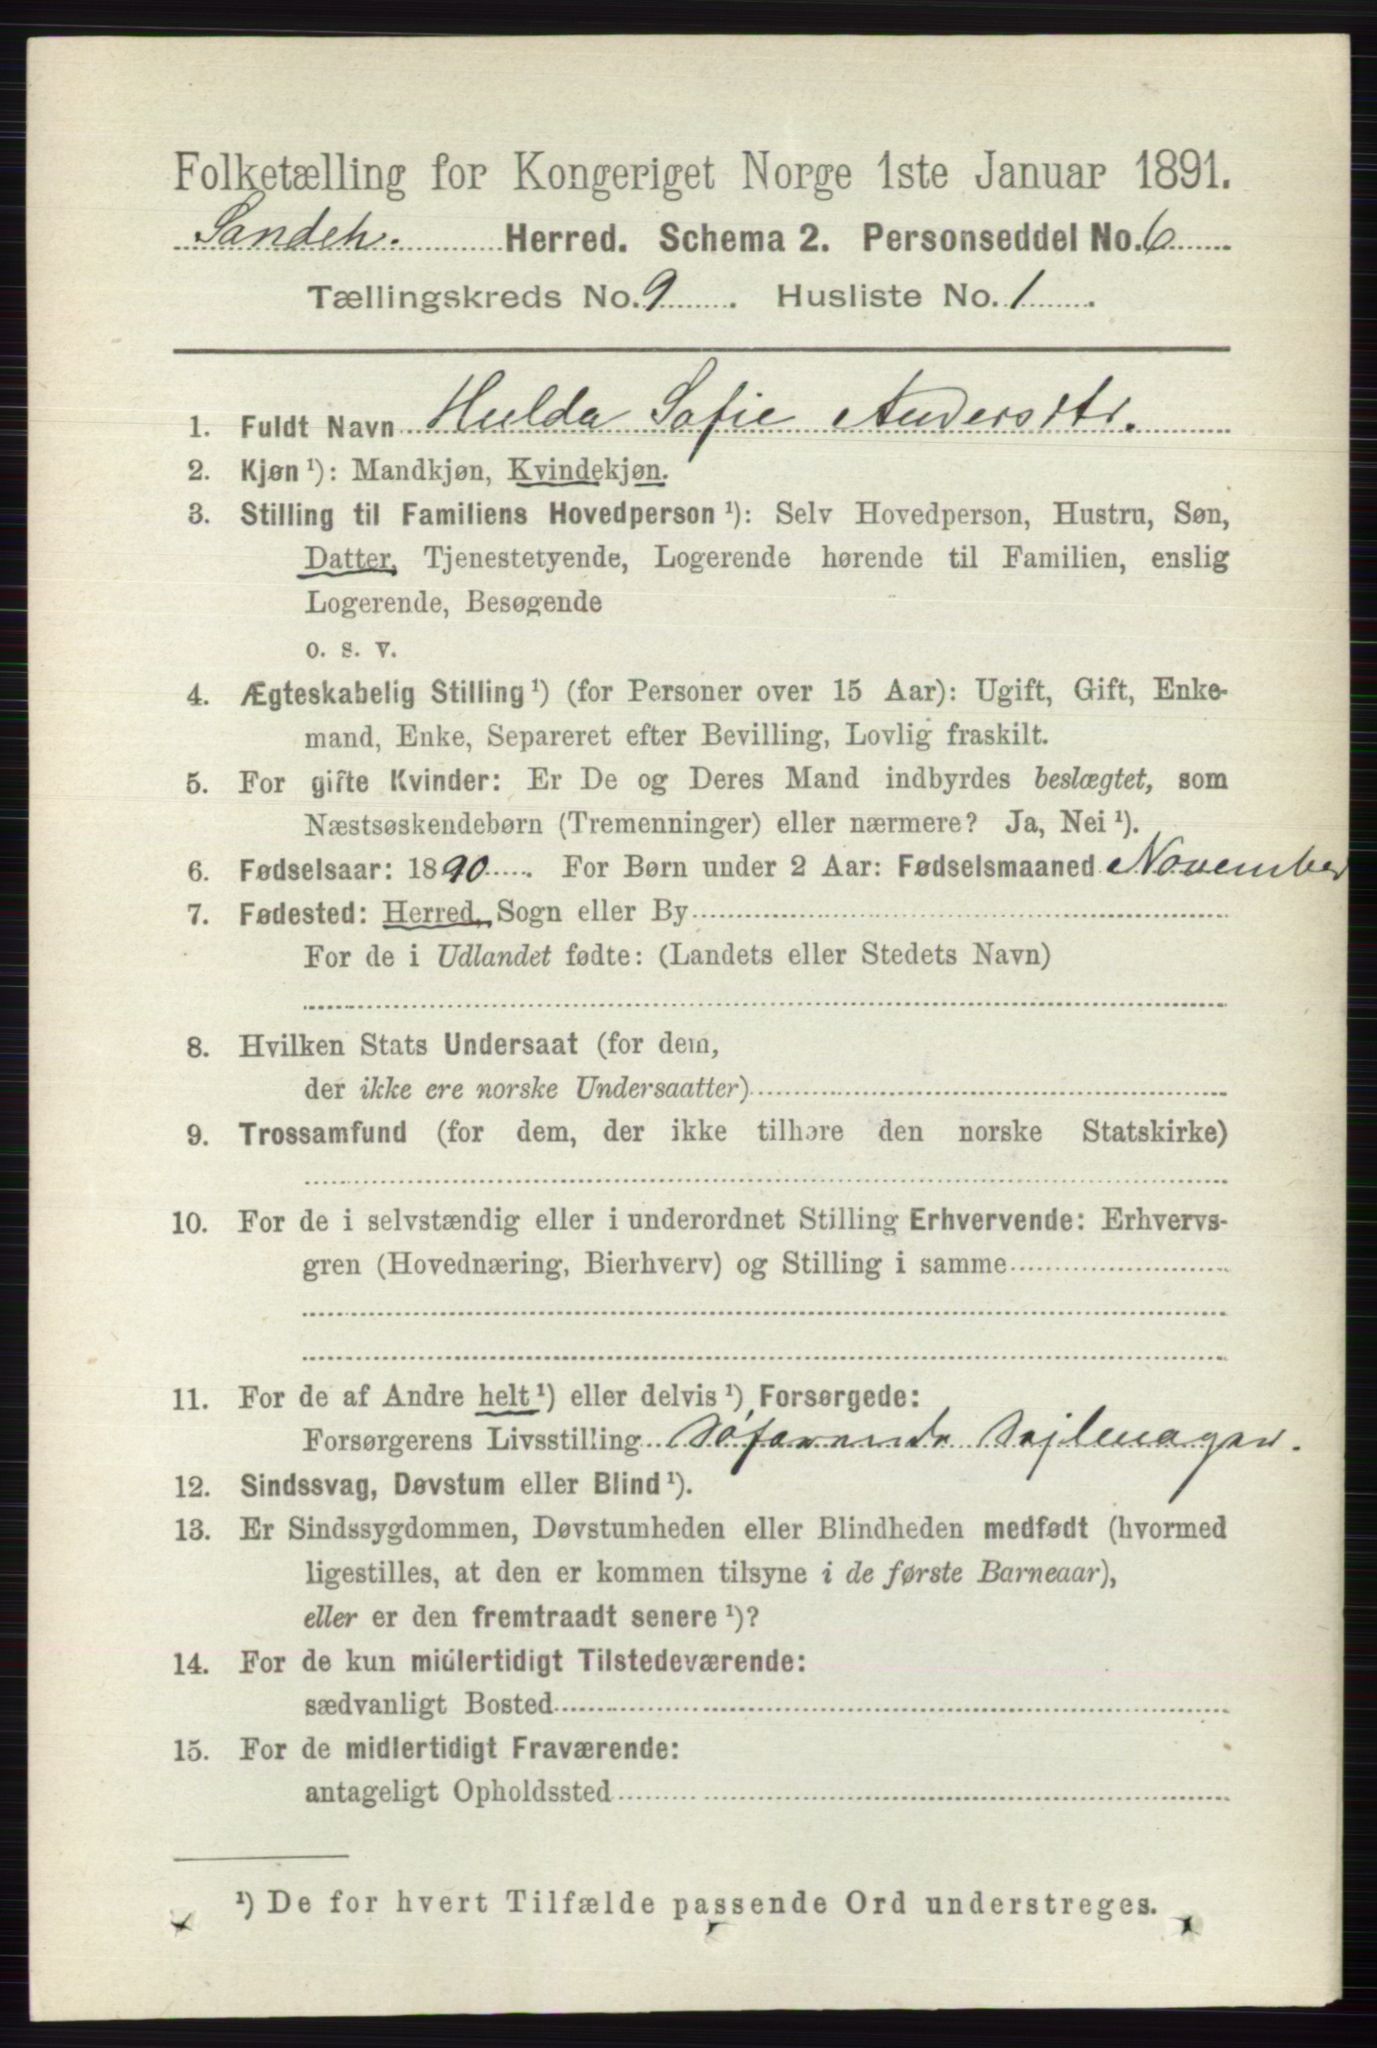 Folketælling for Kongeriget Norge 1ste Januar 1891.
Sandeh. Herred. Schema 2. Personseddel No. 6
Tællingskreds No. 9 . Husliste No. 1 .
1. Fuldt Navn Hulda Sofie Andersdtr.
2. Kjøn ¹): Mandkjøn, Kvindekjøn.
3. Stilling til Familiens Hovedperson ¹): Selv Hovedperson, Hustru, Søn,
Datter, Tjenestetyende, Logerende hørende til Familien, enslig
Logerende, Besøgende
o. s. v.
4. Ægteskabelig Stilling ¹) (for Personer over 15 Aar): Ugift, Gift, Enke-
mand, Enke, Separeret efter Bevilling, Lovlig fraskilt.
5. For gifte Kvinder: Er De og Deres Mand indbyrdes beslægtet, som
Næstsøskendebørn (Tremenninger) eller nærmere? Ja, Nei ¹).
6. Fødselsaar: 1890. For Børn under 2 Aar: Fødselsmaaned November
7. Fødested: Herred, Sogn eller By
For de i Udlandet fødte: (Landets eller Stedets Navn)
8. Hvilken Stats Undersaat (for dem,
der ikke ere norske Undersaatter)
9. Trossamfund (for dem, der ikke tilhøre den norske Statskirke)
10. For de i selvstændig eller i underordnet Stilling Erhvervende: Erhvervs-
gren (Hovednæring, Bierhverv) og Stilling i samme
11. For de af Andre helt ¹) eller delvis ¹) Forsørgede:
Forsørgerens Livsstilling Søfarende Sejlmager.
12. Sindssvag, Døvstum eller Blind ¹).
13. Er Sindssygdommen, Døvstumheden eller Blindheden medfødt (hvormed
ligestilles, at den er kommen tilsyne i de første Barneaar),
eller er den fremtraadt senere ¹)?
14. For de kun midlertidigt Tilstedeværende:
sædvanligt Bosted
15. For de midlertidigt Fraværende:
antageligt Opholdssted
¹) De for hvert Tilfælde passende Ord understreges.